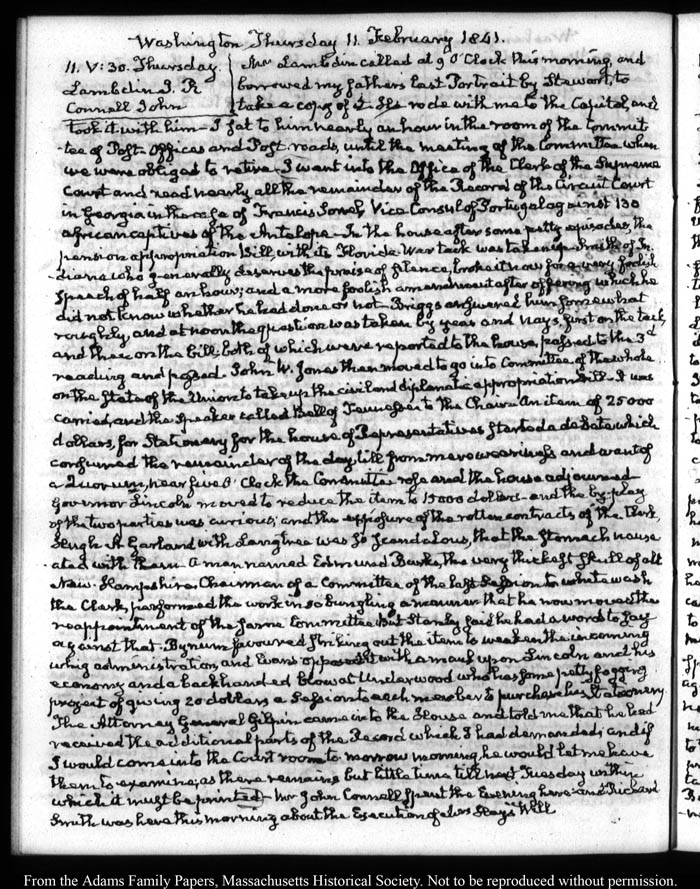 Washington Thursday 11. February 1841.
11. V:30. Thursday
Lambdin J. R
Connell John
Mr Lambdin called at 9 O'Clock this morning, and
borrowed my fathers last Portrait by Stewart, to
take a copy of it. He rode with me to the Capitol, and
took it with him — I sat to him nearly an hour in the room of the Commit
-tee of Post-Offices and Post roads, until the meeting of the Committee when
we were obliged to retire — I went into the Office of the Clerk of the Supreme
Court and read nearly all the remainder of the Record of the Circuit Court
in Georgia in the case of Francis Sorrel, Vice Consul of Portugal against 130
african captives of the Antelope — In the house after some petty episodes, the
pension appropriation Bill, with its Florida War tack was taken up. Smith of In
-diana who generally deserves the praise of silence, broke it now for a very foolish
speech of half an hour; and a more foolish amendment after offering which he
did not know whether he had done or not. Briggs answered him somewhat
roughly, and at noon the question was taken by yeas and nays, first on the tack,
and then on the bill both of which were reported to the house, passed to the 3d
reading and passed. John W. Jones then moved to go into Committee of the whole
on the State of the Union to take up the civil and diplomatic appropriation Bill — It was
carried, and the Speaker called Bell of Tennessee to the Chair. An item of 25000
dollars, for Stationery for the house of Representatives started a debate which
consumed the remainder of the day, till from mere weariness and want of
a Quorum, near five O'Clock the Committee rose and the house adjourned
Governor Lincoln moved to reduce the item to 15000 dollars — and the by-play
of the two parties was curious; and the exposure of the rotten contracts of the Clerk,
Hugh A. Garland with Langtree was so scandalous, that the stomach nause
-ated with them. A man named Edmund Burke, the very thickest skull of all
New-Hampshire, Chairman of a Committee of the last Session to white wash
the Clerk, performed the work in so bungling a manner that he now moved the
reappointment of the same Committee. But Stanly said he had a word to say
against that. Bynum favoured striking out the item to weaken the incoming
whig administration, and Evans opposed it with a mauk upon Lincoln and his
economy and a backhanded blow at Underwood who has some petty fogging
project of giving 20 dollars a Session to each member to purchase his Stationery
The Attorney General Gilpin came into the House and told me that he had
received the additional parts of the Record which I had demanded; and if
I would come into the Court room to morrow morning, he would let me have
them to examine; as there remains but little time till next Tuesday within
which it must be printed — Mr John Connell spent the Evening here and Richard
Smith was here this morning about the Execution of Mrs Hay's Will
From the Adams Family Papers, Massachusetts Historical Society. Not to be reproduced without permission.